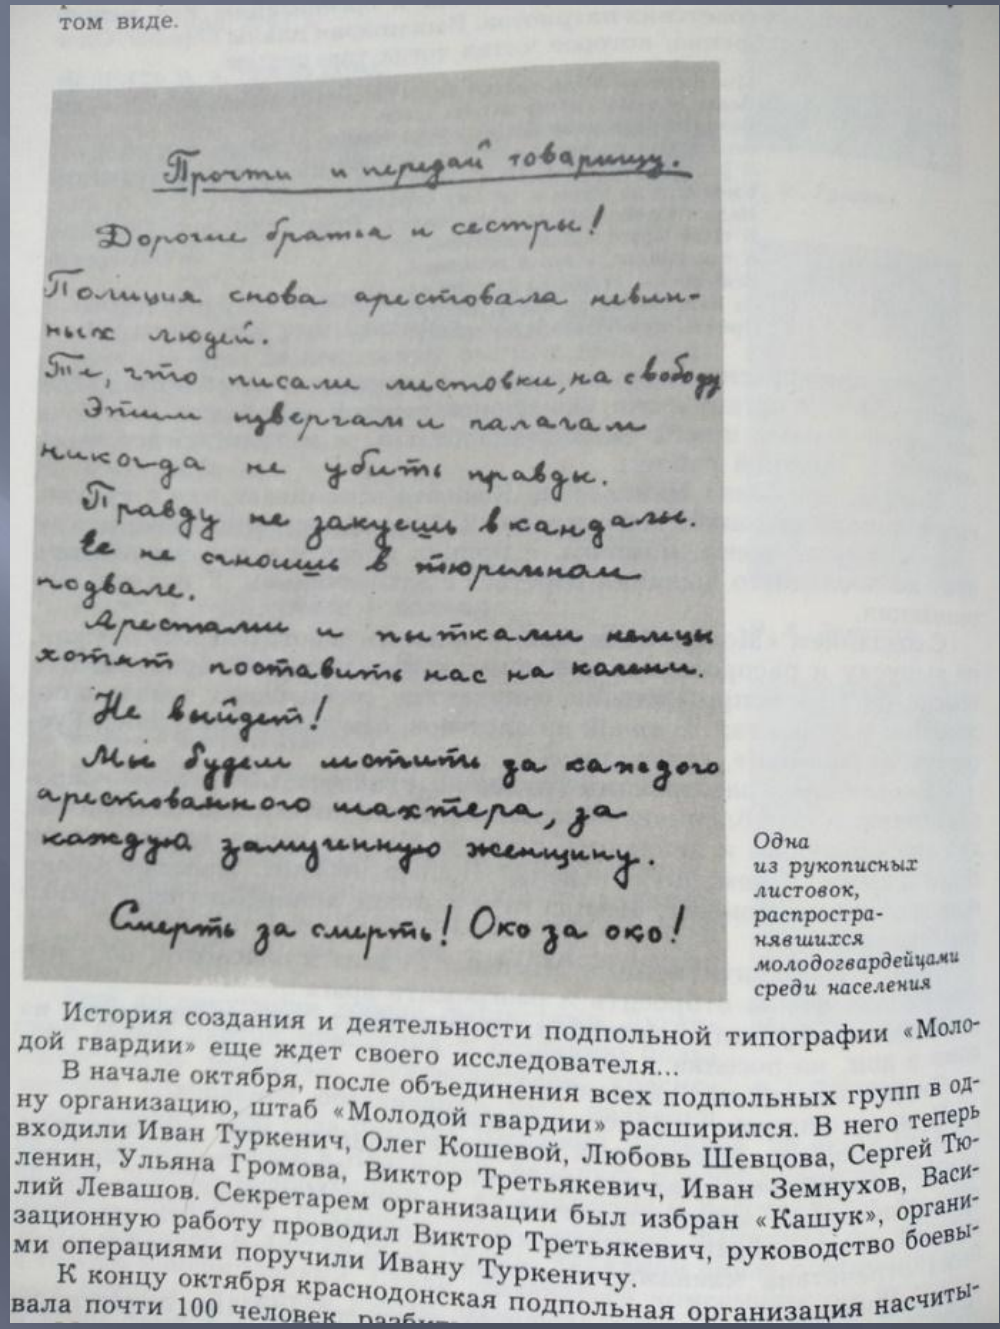 том виде.
Прочти и передай товарищу.
Дорогие братья и сестры!
Полиция снова арестовала невин-
ных людей.
Те, что писали листовки, на свободу
Этим извергам и палачам
никогда не убить правды.
Правду не закуешь в кандалы.
Ее не сгноишь в тюремном
подвале.
Арестами и пытками немцы
хотят поставить нас на колени.
Не выйдет!
Мы будем мстить за каждого
арестованного шахтера, за
каждую замученную женщину.
Смерть за смерть! Око за око!
Одна
из рукописных
листовок,
распростра-
нявшихся
молодогвардейцами
среди населения
История создания и деятельности подпольной типографии «Моло-
дой гвардии» еще ждет своего исследователя...
В начале октября, после объединения всех подпольных групп в од-
ну организацию, штаб «Молодой гвардии» расширился. В него теперь
входили Иван Туркенич, Олег Кошевой, Любовь Шевцова, Сергей Тю-
ленин, Ульяна Громова, Виктор Третьякевич, Иван Земнухов, Васи-
лий Левашов. Секретарем организации был избран «Кашук», органи-
зационную работу проводил Виктор Третьякевич, руководство боевы-
ми операциями поручили Ивану Туркеничу.
К концу октября краснодонская подпольная организация насчиты-
вала почти 100 человек